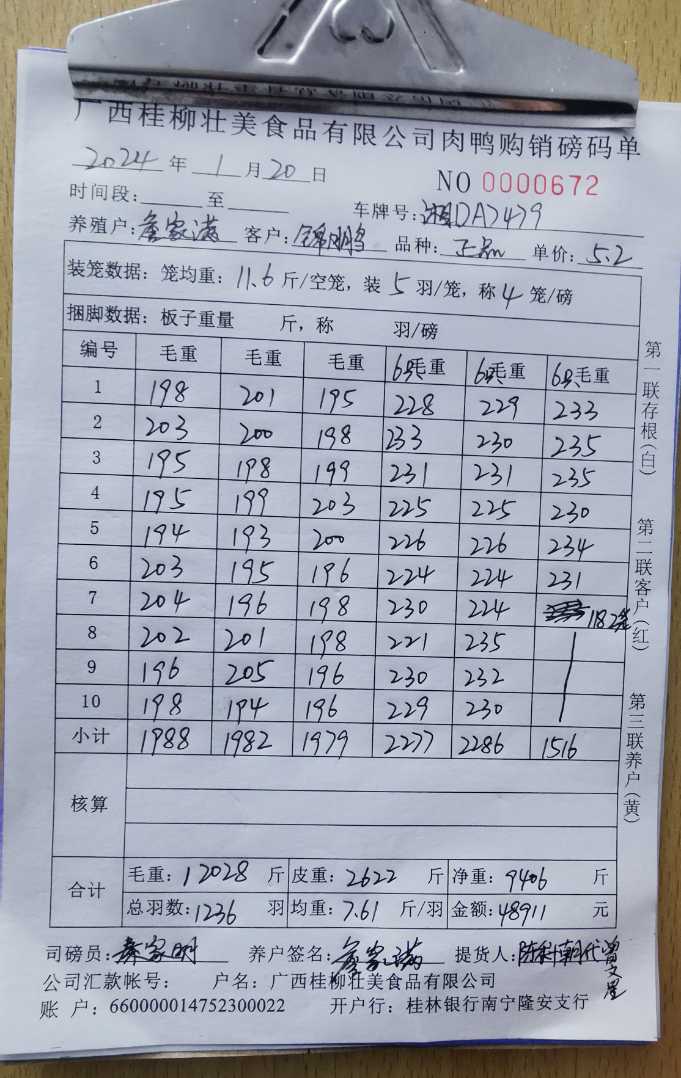 广西桂柳壮美食品有限公司肉鸭购销磅码单
2024年1月20日
NO 0000672
时间段: 至 车牌号:湘DA7479
养殖户:詹家满 客户:锦鹏 品种:正品 单价:5.2
装笼数据:笼均重:11.6斤/空笼,装5羽/笼,称4笼/磅
捆脚数据:板子重量 斤,称 羽/磅
编号 毛重 毛重 毛重 6只毛重 6只毛重 6只毛重
1 198 201 195 228 229 233
2 203 200 198 233 230 235
3 195 198 199 231 231 235
4 195 199 203 225 225 230
5 194 193 200 226 226 234
6 203 195 196 224 224 231
7 204 196 198 230 224 118
8 202 201 198 221 235
9 196 205 196 230 232
10 198 194 196 229 230
小计 1988 1982 1979 2277 2286 1516
核算
合计 毛重:12028斤 皮重:2622斤 净重:9406斤
总羽数:1236羽 均重:7.61斤/羽 金额:48911元
司磅员:秦家明 养户签名:詹家满 提货人:
公司汇款帐号: 户名:广西桂柳壮美食品有限公司
账 户:660000014752300022 开户行:桂林银行南宁隆安支行
第一联存根(白)
第二联客户(红)
第三联养户(黄)